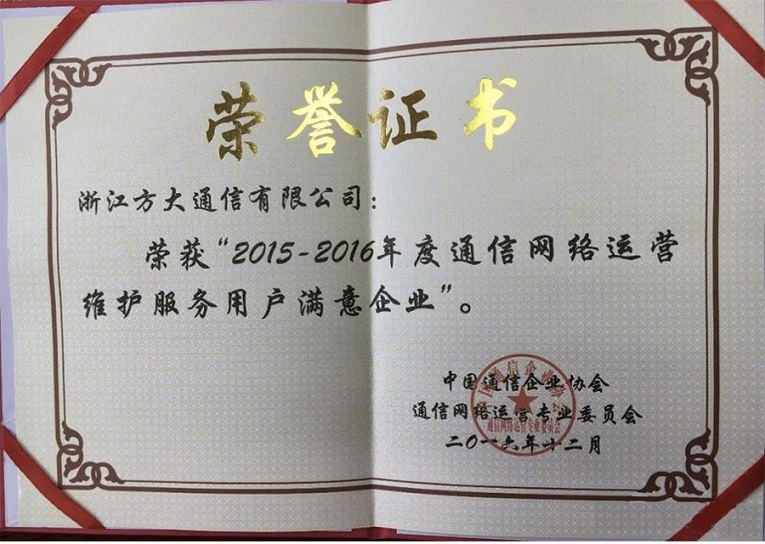 荣誉证书
浙江方大通信有限公司：
荣获“2015-2016年度通信网络运营
维护服务用户满意企业”。
中国通信企业协会
通信网络运营专业委员会
二〇一六年十二月
通信网络运营专业委员会